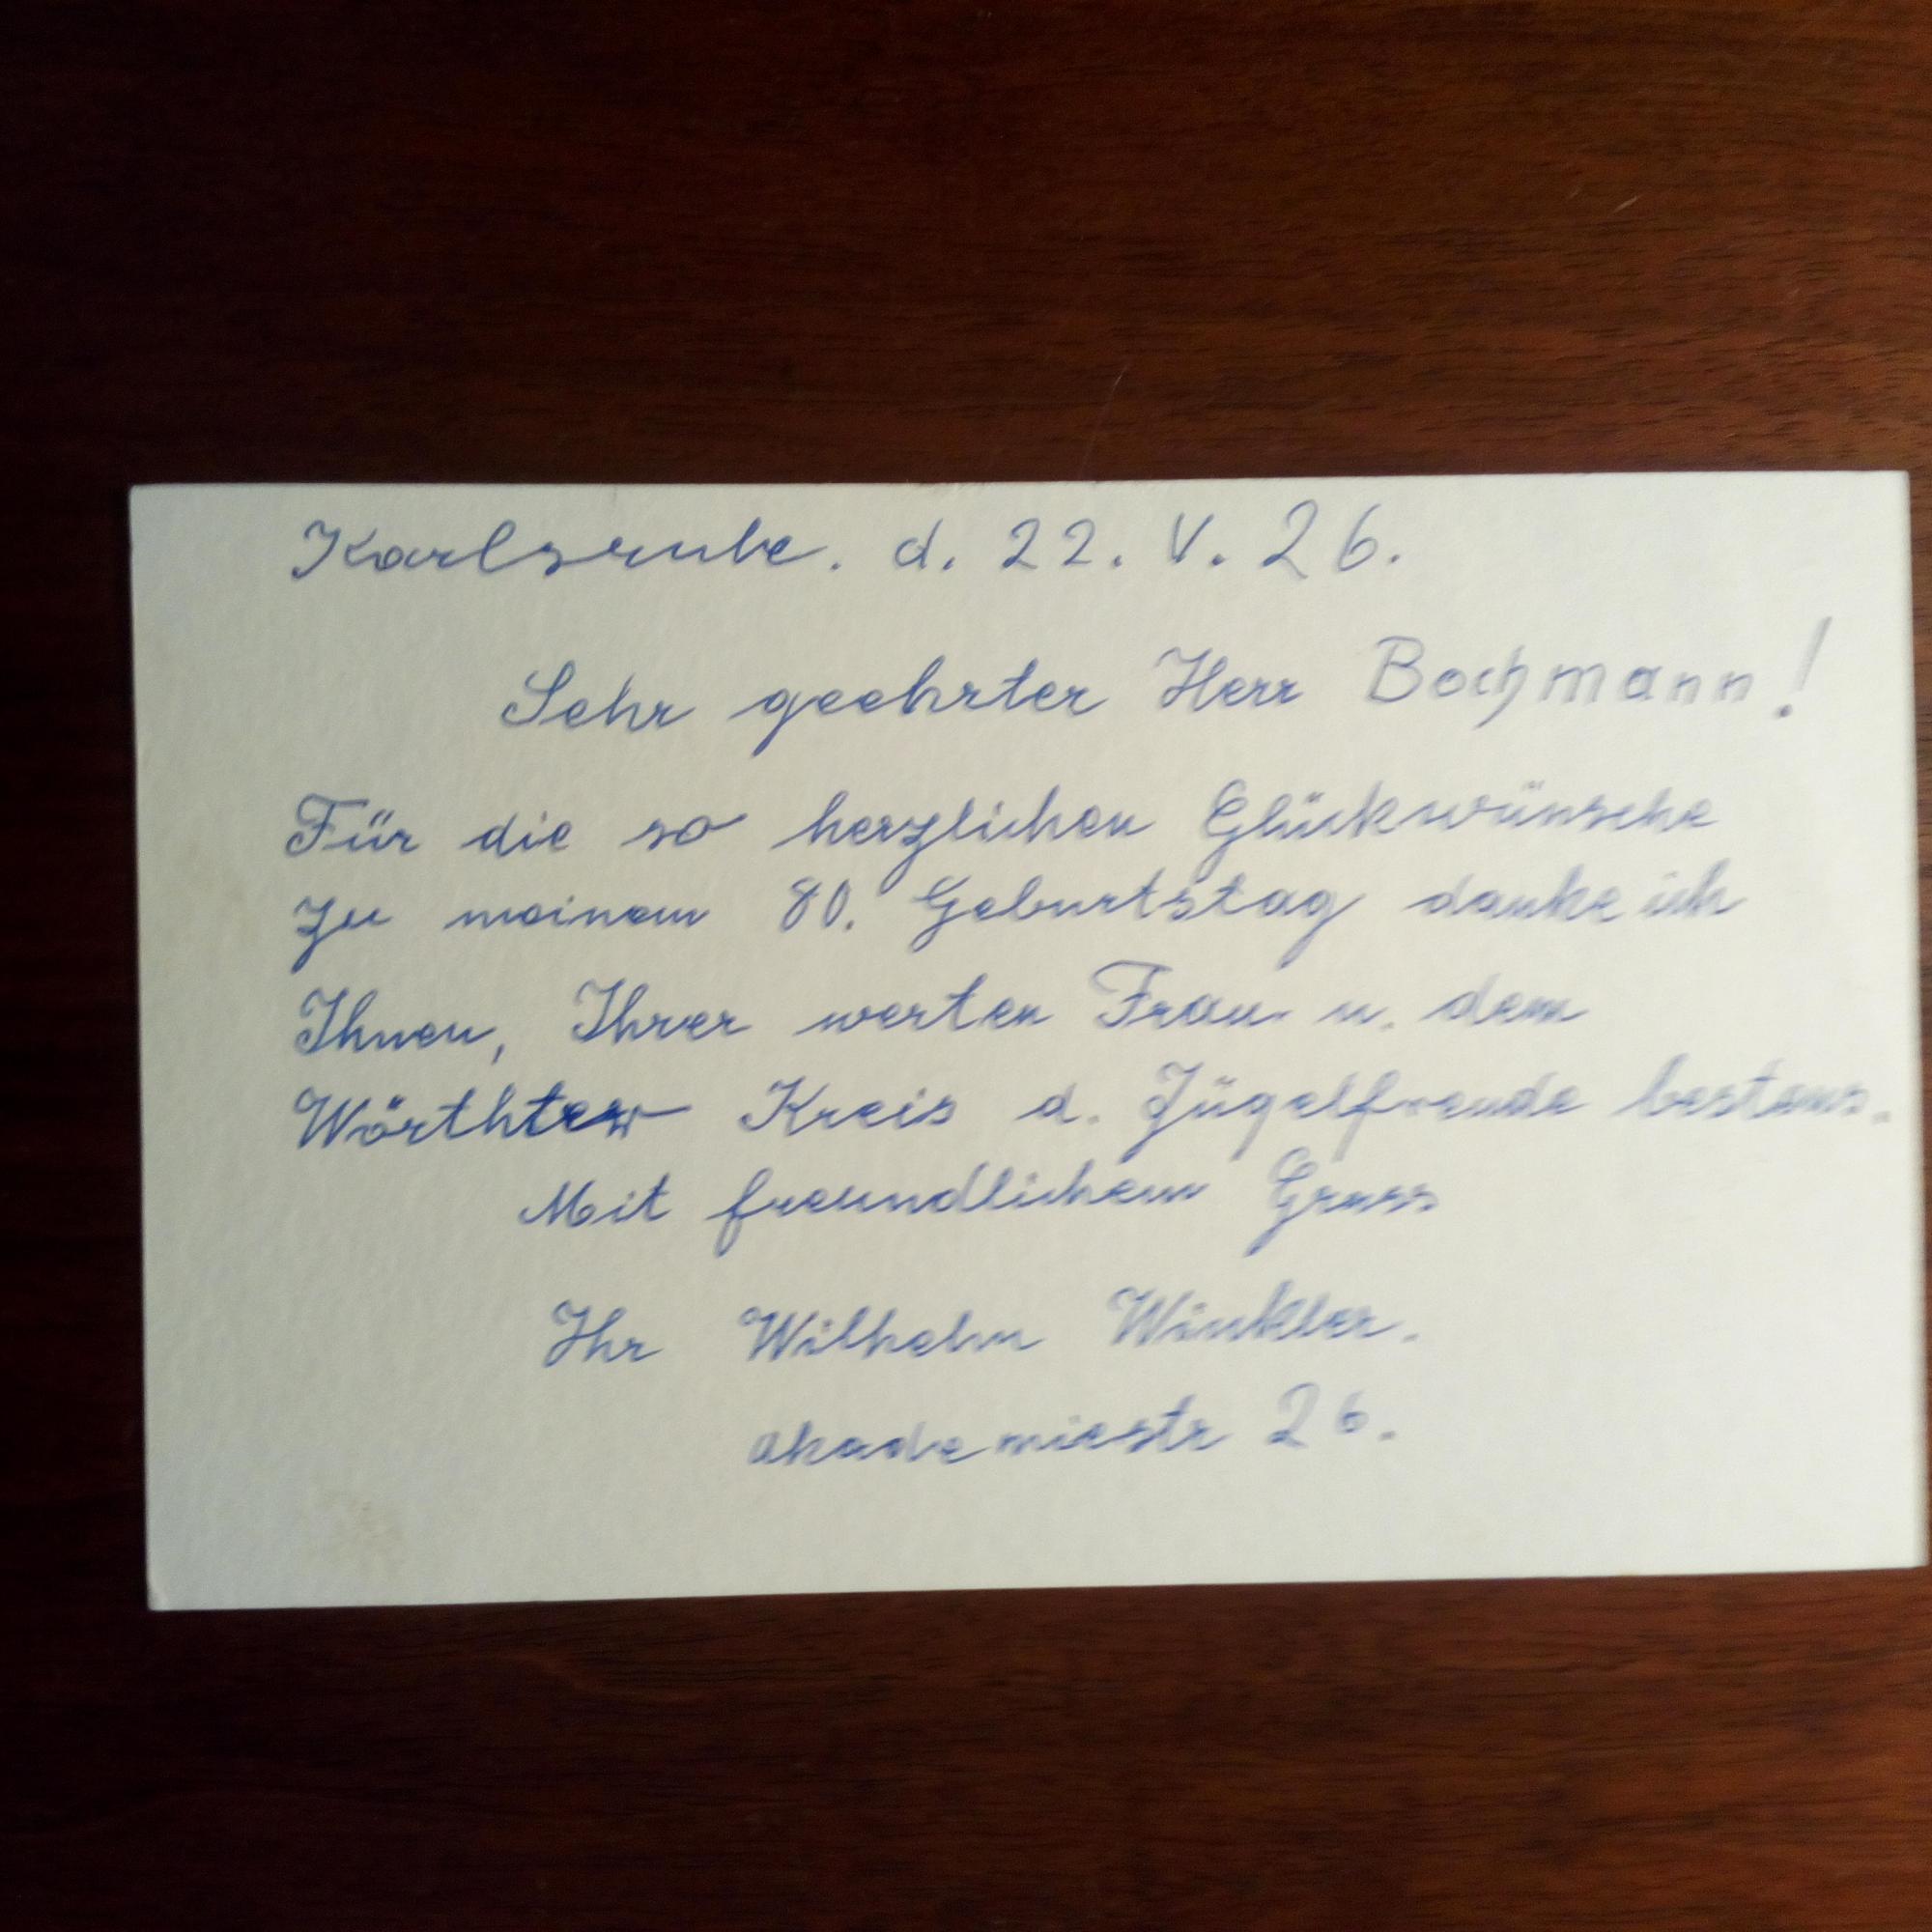 Karlsruhe. d. 22. V. 26.
Sehr geehrter Herr Bochmann!
Für die so herzlichen Glückwünsche
zu meinem 80. Geburtstag danke ich
Ihnen, Ihrer werten Frau u. dem
Kreis d. bestens.
Mit freundlichem Gruss
Ihr Wilhelm Winkler.
Akademiestr 26.